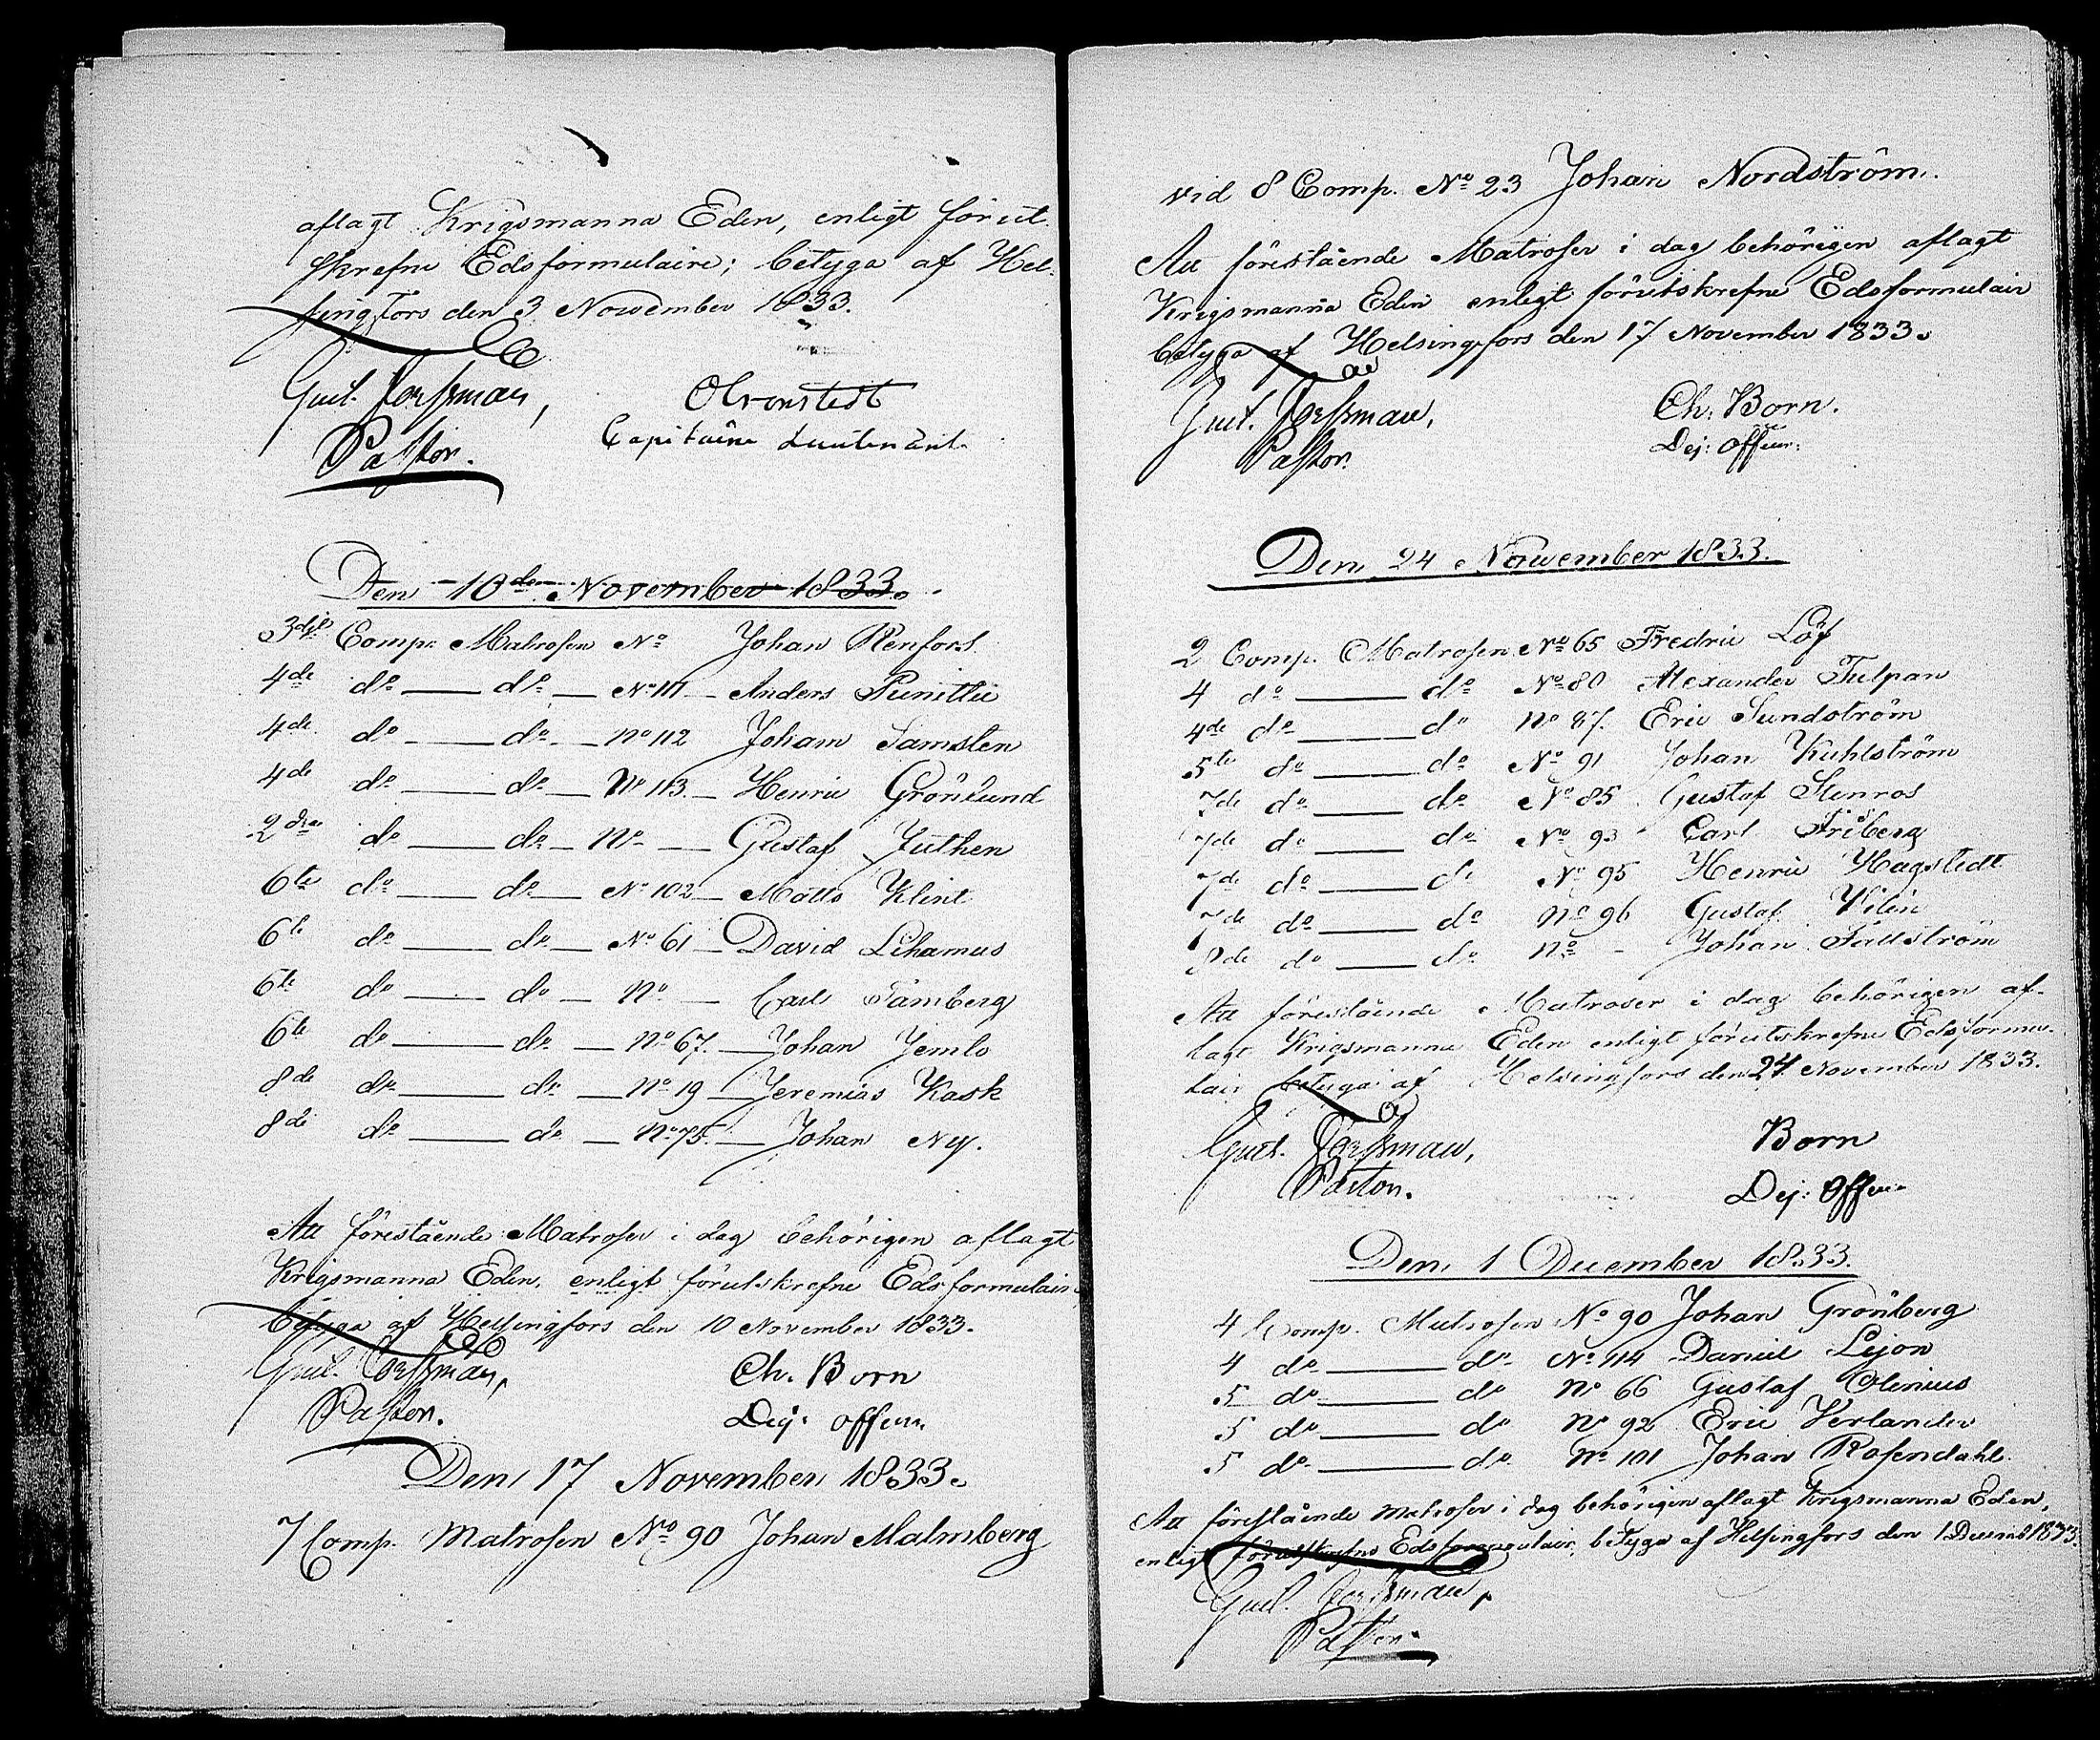 aflagt Krigsmanna Eden, enligt förut
skrefne Edsformulaire; betyga af Hel-
singfors den 3 November 1833.
Gust. Forssman,
Pastor.
Capitaine Lieutenant
Den 10de November 1833.
3dje Comp. Matrosen No Johan Renfors
4de do do No 111 Anders Punittu
4de do do No 112 Johan Samsten
4de do do No 113 Henric Grönlund
2dra do do No Gustaf Juthen
6te do do No 102 Matts Klint
6te do do No 61 David Lihamus
6te do do No Carl Tamberg
6te do do No 67. Johan Jemlo
8de do do No 19 Jeremias Kask
8de do do No 75. Johan Ny.
Att förestående Matroser i dag behörigen aflagt
Krigsmanna Eden, enligt förutskrefne Edsformulair
betyga af Helsingfors den 10 November 1833.
Gust. Forssman,
Pastor.
Ch. Born
Dej: officer
Den 17 November 1833.
7 Comp. Matrosen No 90 Johan Malmberg
vid 8 Comp. No 23 Johan Nordström.
Att förestående Matroser i dag behörigen aflagt
Krigsmanna Eden enligt förutskrefne Edsformulair
betyga af Helsingfors den 17 November 1833.
Gust. Forssman,
Pastor.
Ch. Born.
Dej: officer:
Den 24 November 1833.
2 Comp. Matrosen No 65 Fredric Löf
4 do do No 80 Alexander Tulpan
4de do do No 87. Eric Sundström
5te do do No 91 Johan Kuhlström
7de do do No 85 Gustaf Stenros
7de do do No 93 Carl Friberg
7de do do No 95 Henric Hagstedt
7de do do No 96 Gustaf Vilin
8de do do No - Johan Fallström
Att förestående Matroser i dag behörigen af-
lagt Krigsmanna Eden enligt förutskrefne Edsformu-
lair betyga af Helsingfors den 24 November 1833.
Gust. Forssman,
Pastor.
Born
Dej: officer
Den 1 December 1833.
4 Comp. Matrosen No 90 Johan Grönberg
4 do do No 114 Daniel Lejon
5 do do No 66 Gustaf Olenius
5 do do No 92 Eric Verlander
5 do do No 101 Johan Rosendahl
Att förestående matroser i dag behörigen aflagt Krigsmanna Eden,
enligt förutskrefne Edsformulair, betyga af Helsingfors den 1 Decemb 1833.
Gust. Forssman,
Pastor.